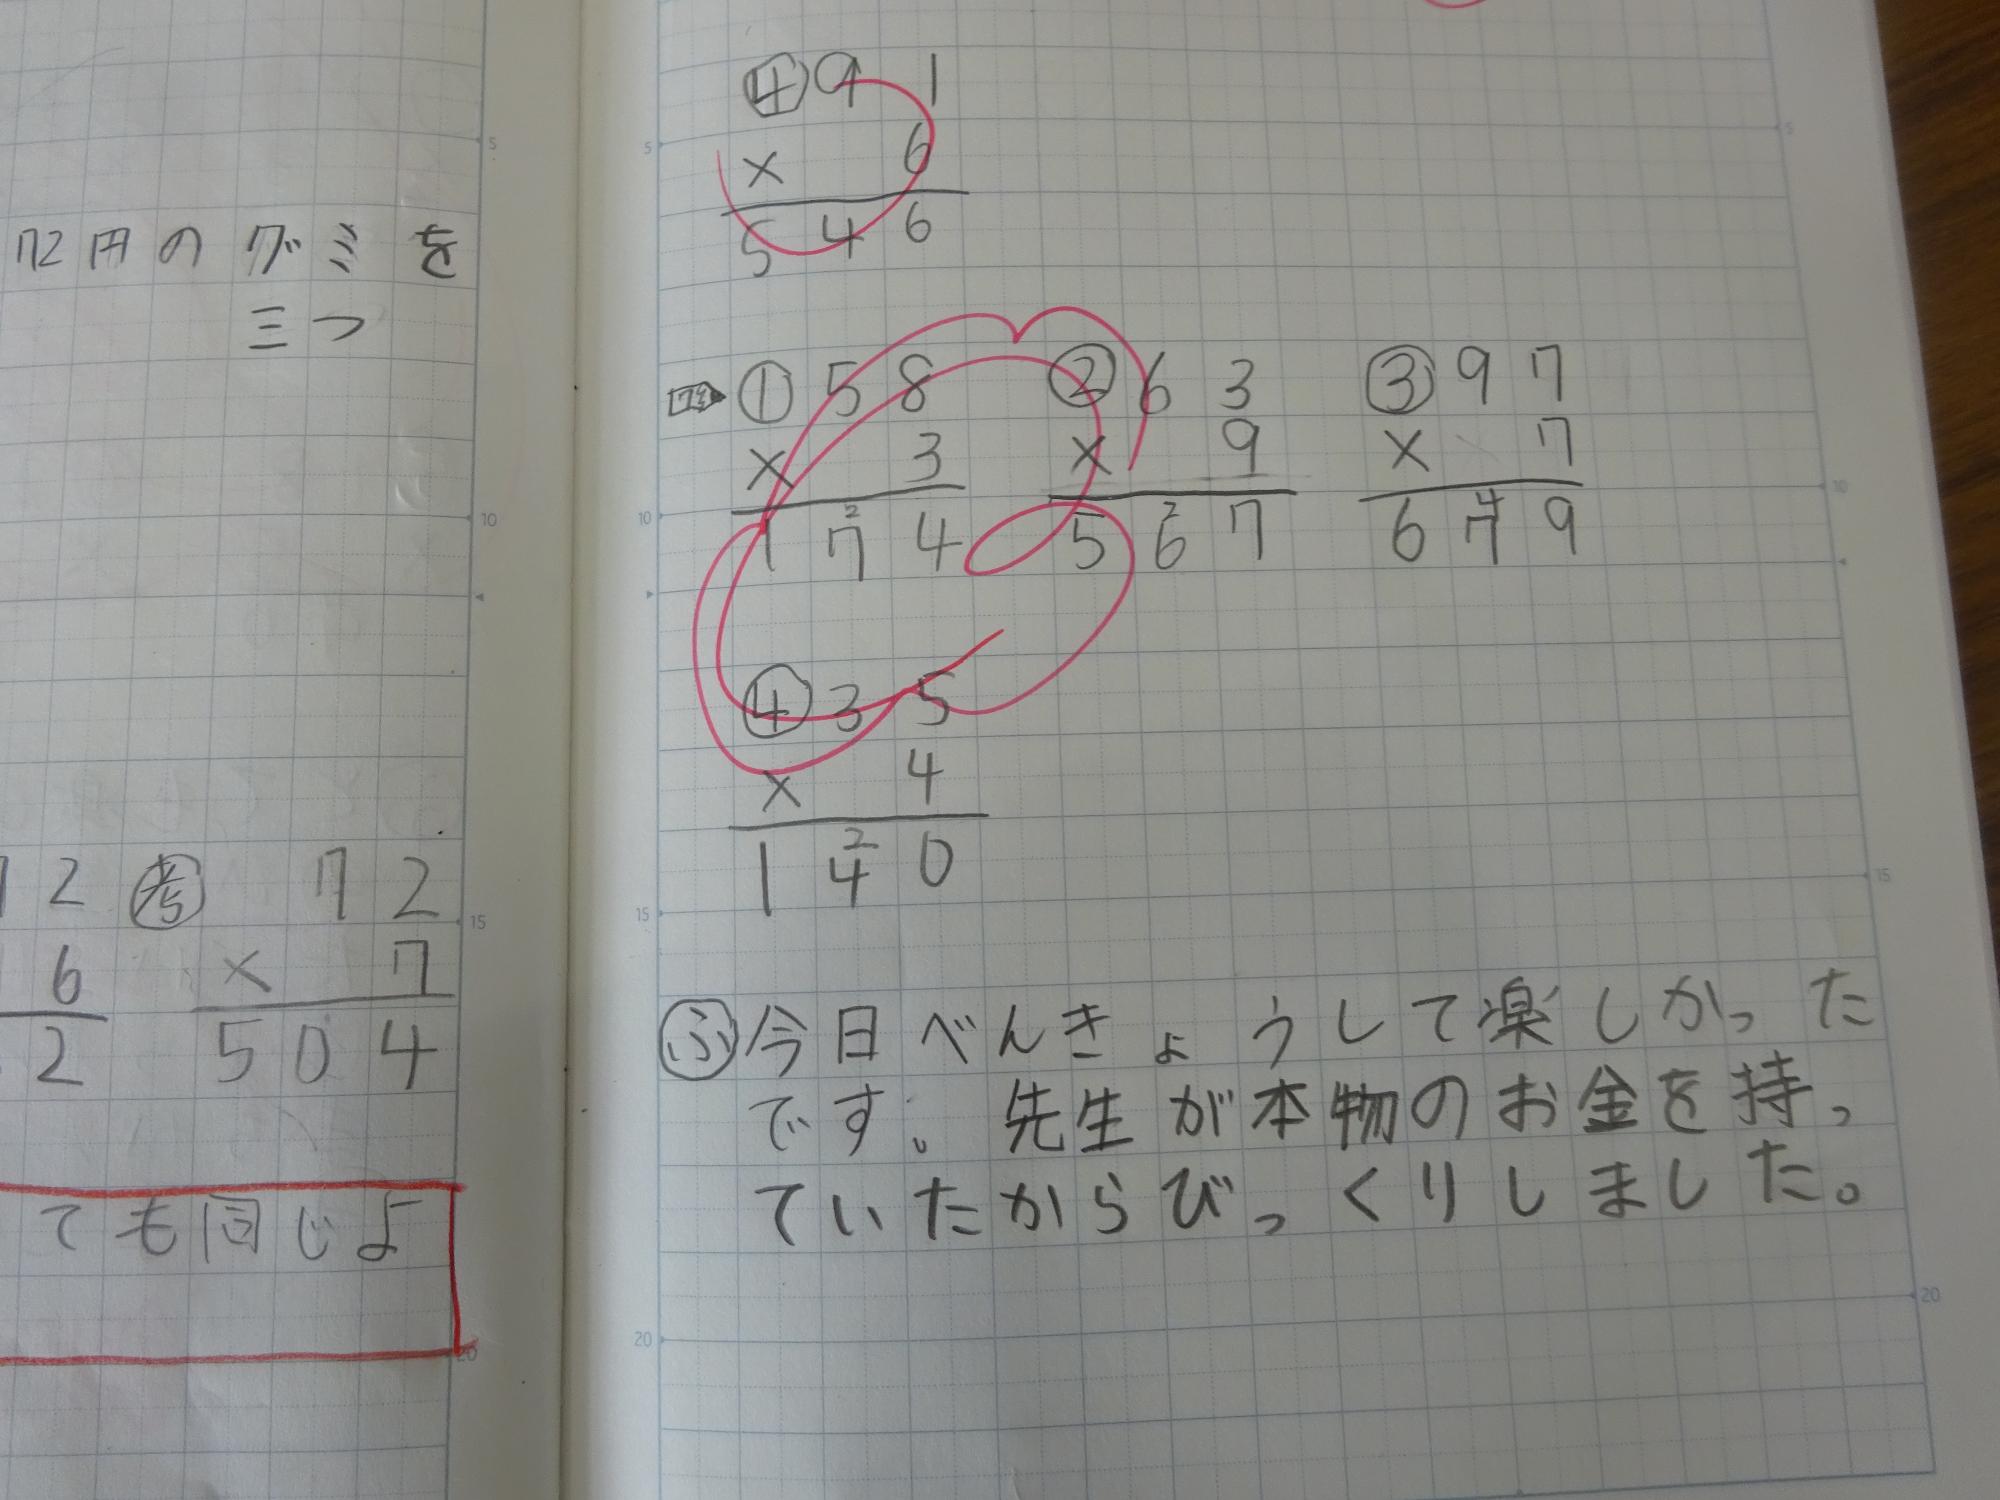 72円のグミを
三つ
2
6
2
考 72
× 7
504
ても同じよ
④ 91
× 6
546
① 58
× 3
1 2 7 4
② 63
× 9
5 2 6 7
③ 97
× 7
6 4 7 9
④ 35
× 4
1 2 4 0
ふ 今日べんきょうして楽しかった
です。先生が本物のお金を持っ
ていたからびっくりしました。